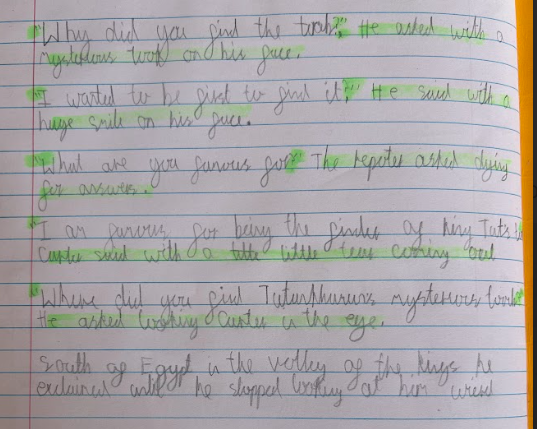 "Why did you find the tomb?" He asked with a
mysterious look on his face.
"I wanted to be first to find it." He said with a
huge smile on his face.
"What are you famous for" The repoter asked dying
for answers.
"I am famous for being the finder of King Tuts
Carter said with a little tears coming out
"Where did you find mysterious tomb"
He asked looking Carter in the eye.
South of Egypt in the valley of the kings he
exclaimed until he stopped looking at him weird